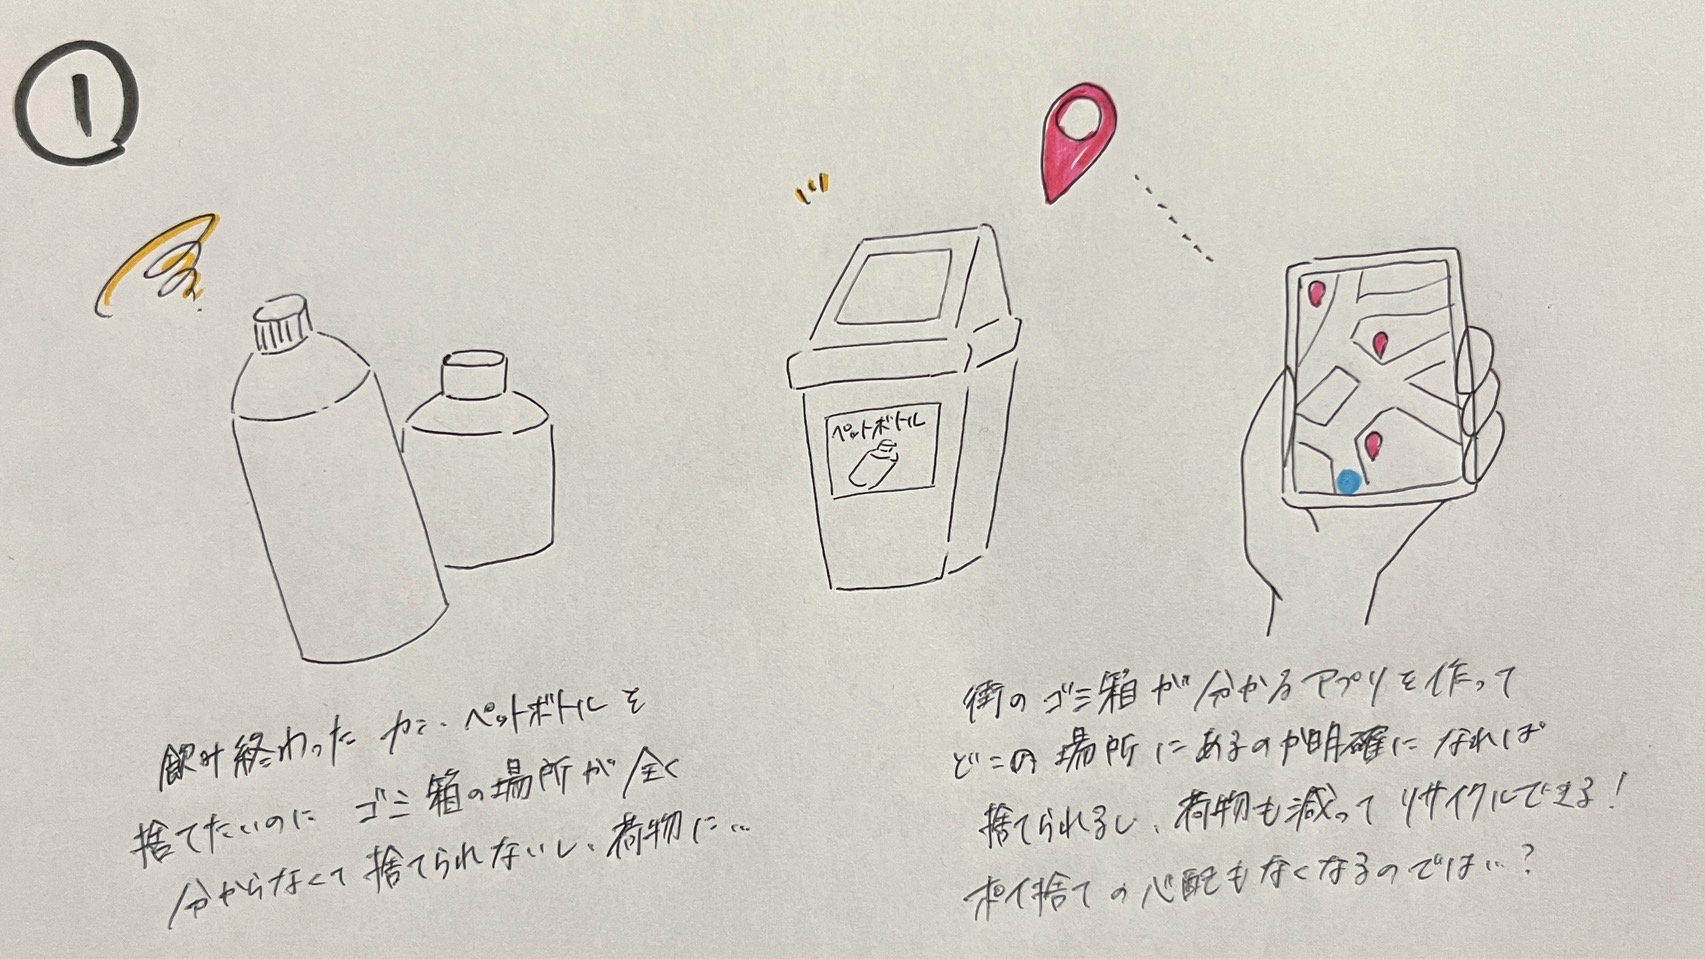 ①
ペットボトル
飲み終わったカン、ペットボトルを
捨てたいのにゴミ箱の場所が全く
分からなくて捨てられないし、荷物に…
街のゴミ箱が分かるアプリを作って
どこの場所にあるのか明確になれば
捨てられるし、荷物も減ってリサイクルできる!
ポイ捨ての心配もなくなるのでは…?